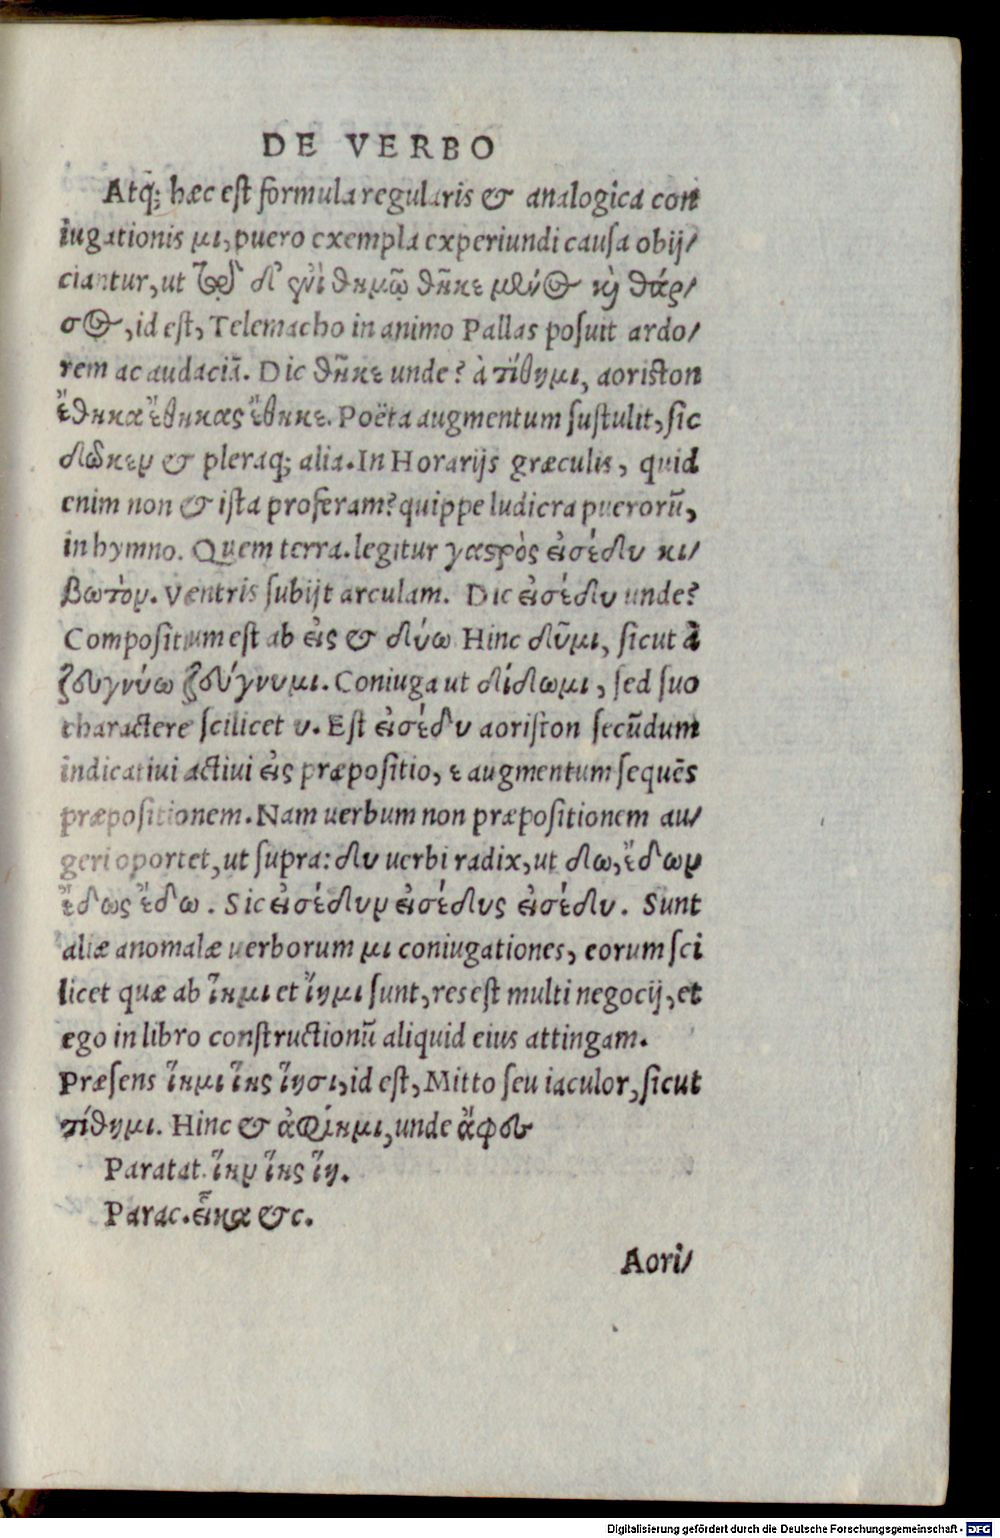 DE VERBO
Atq; hæc est formula regularis & analogica con
iugationis μι, puero exempla experiundi causa obij/
ciantur, ut τῷ δ' ἐνὶ θυμῷ θῆκε μένος καὶ θάρ/
σος, id est, Telemacho in animo Pallas posuit ardo/
rem ac audaciā. Dic θῆκε unde? à τίθημι, aoriston
ἔθηκα ἔθηκας ἔθηκε. Poëta augmentum sustulit, sic
δῶκεν & pleraq; alia. In Horarijs græculis, quid
enim non & ista proferam? quippe ludicra puerorū,
in hymno. Quem terra. legitur γαστρὸς εἰσέδυ κι/
βωτὸν. Ventris subijt arculam. Dic εἰσέδυ unde?
Compositum est ab εἰς & δύω Hinc δῦμι, sicut à
ζευγνύω ζεύγνυμι. Coniuga ut δίδωμι, sed suo
charactere scilicet υ. Est εἰσέδυ aoriston secūdum
indicatiui actiui εἰς præpositio, ε augmentum sequēs
præpositionem. Nam uerbum non præpositionem au/
geri oportet, ut supra: δυ uerbi radix, ut δω, ἔδων
ἔδως ἔδω. Sic εἰσέδυν εἰσέδυς εἰσέδυ. Sunt
aliæ anomalæ uerborum μι coniugationes, eorum sci
licet quæ ab ἵημι et ἴημι sunt, res est multi negocij, et
ego in libro constructionū aliquid eius attingam.
Præsens ἵημι ἵης ἵησι, id est, Mitto seu iaculor, sicut
τίθημι. Hinc & ἀφίημι, unde ἄφες
Paratat. ἵην ἵης ἵη.
Parac. εἷκα &c.
Aori/
Digitalisierung gefördert durch die Deutsche Forschungsgemeinschaft - DFG